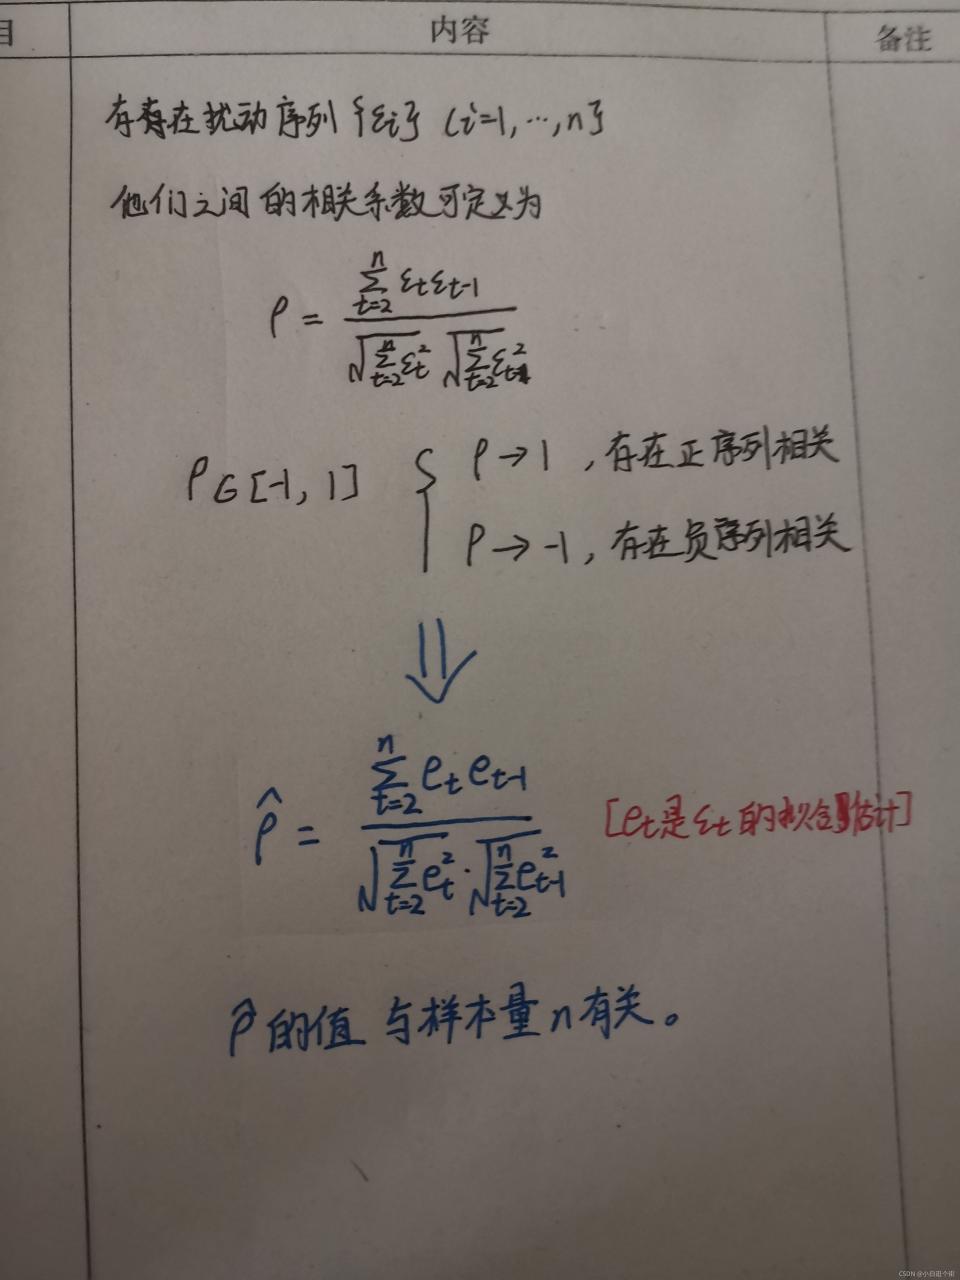 目 内容 备注
存在扰动序列 {εi} (i=1,…,n}
他们之间的相关系数可定义为
ρ = \frac{\sum_{t=2}^{n} ε_t ε_{t-1}}{\sqrt{\sum_{t=2}^{n} ε_t^2} \sqrt{\sum_{t=2}^{n} ε_{t-1}^2}}
ρ∈[-1, 1] { ρ→1, 存在正序列相关
ρ→-1, 存在负序列相关
⇓
\hat{ρ} = \frac{\sum_{t=2}^{n} e_t e_{t-1}}{\sqrt{\sum_{t=2}^{n} e_t^2} · \sqrt{\sum_{t=2}^{n} e_{t-1}^2}} [e_t是ε_t的拟合估计]
\hat{ρ}的值 与样本量n有关。
CSDN @小白逛个街